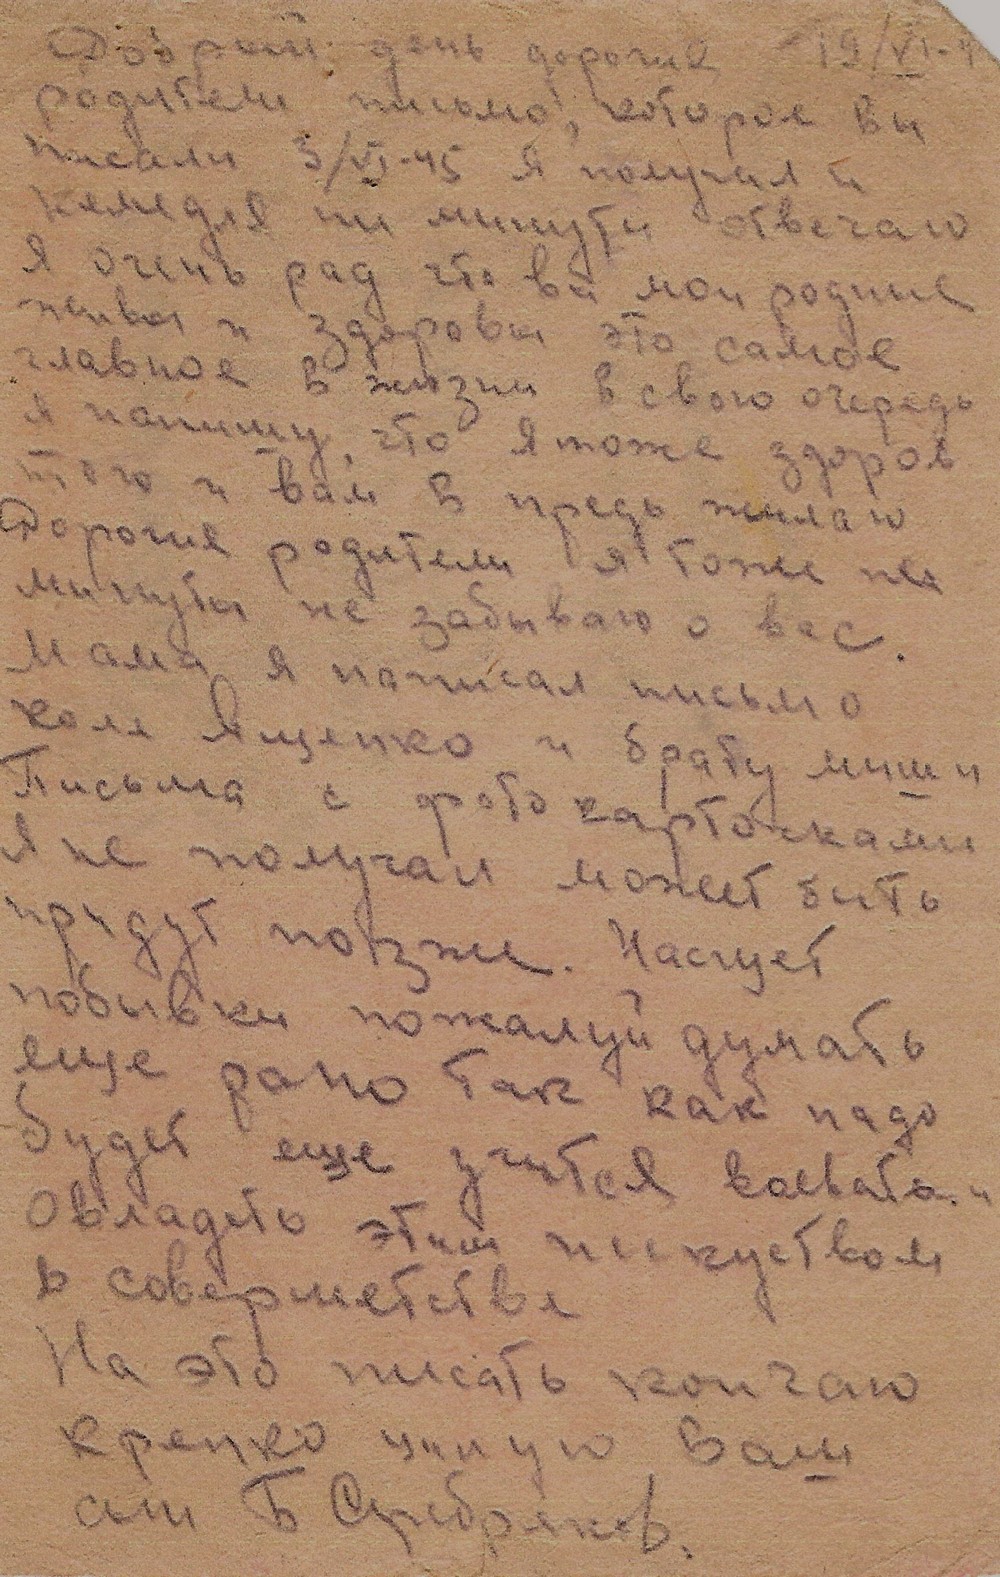 Добрый день дорогие 19/VI-4
родители письмо, которое вы
писали 3/VI-45 я получил и
немедля ни минуты отвечаю
Я очень рад что вы мои родные
живы и здоровы это самое
главное в жизни в свою очередь
я напишу, что я тоже здоров
того и вам в предь желаю
Дорогие родители я тоже не
минуты не забываю о вас.
Мама я написал письмо
коле Ященко и брату миши
Письма с фото карточками
Я не получал может быть
придут позже. Насчет
побывки пожалуй думать
еще рано так как надо
будет еще учится воевать и
Овладеть этим искуством
в совершетстве
На это писать кончаю
крепко жму ваш
сын Б Серебряков.